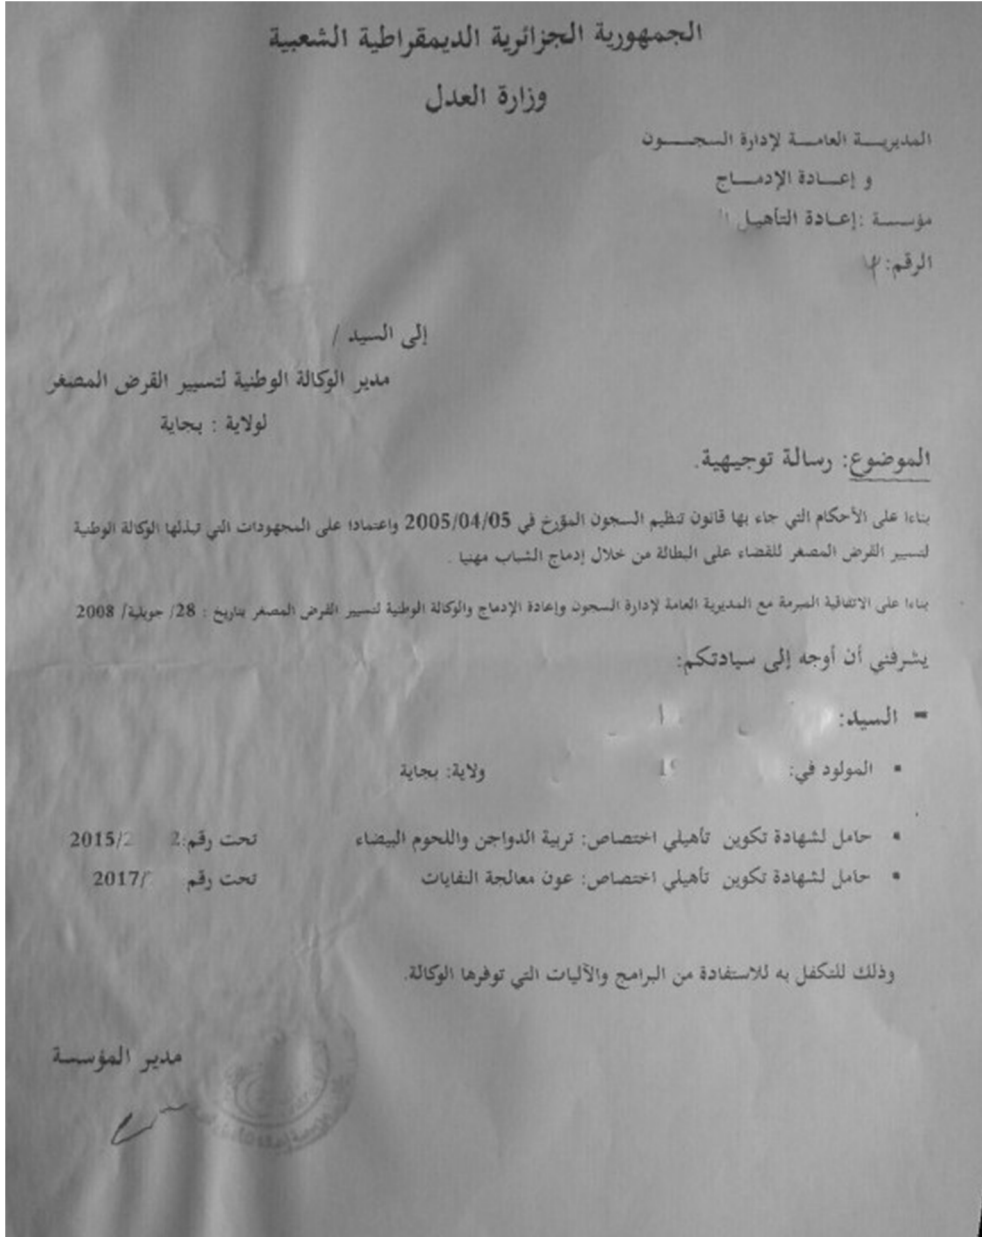 الجمهورية الجزائرية الديمقراطية الشعبية
وزارة العدل
المديريـــة العامـــة لإدارة السجــــون
و إعـــادة الإدمـــاج
مؤسسة :إعـادة التأهيـل
الرقم:
إلى السيد /
مدير الوكالة الوطنية لتسيير القرض المصغر
لولاية : بجاية
الموضوع: رسالة توجيهية.
بناءا على الأحكام التي جاء بها قانون تنظيم السجون المؤرخ في 2005/04/05 واعتمادا على المجهودات التي تبذلها الوكالة الوطنية
لتسيير القرض المصغر للقضاء على البطالة من خلال إدماج الشباب مهنيا .
بناءا على الاتفاقية المبرمة مع المديرية العامة لإدارة السجون وإعادة الإدماج والوكالة الوطنية لتسيير القرض المصغر بتاريخ : 28/ جويلية/ 2008
يشرفني أن أوجه إلى سيادتكم:
- السيد:
▪ المولود في: ولاية: بجاية
▪ حامل لشهادة تكوين تأهيلي اختصاص: تربية الدواجن واللحوم البيضاء تحت رقم: 2015/
▪ حامل لشهادة تكوين تأهيلي اختصاص: عون معالجة النفايات تحت رقم 2017/
وذلك للتكفل به للاستفادة من البرامج والآليات التي توفرها الوكالة.
مدير المؤسسة